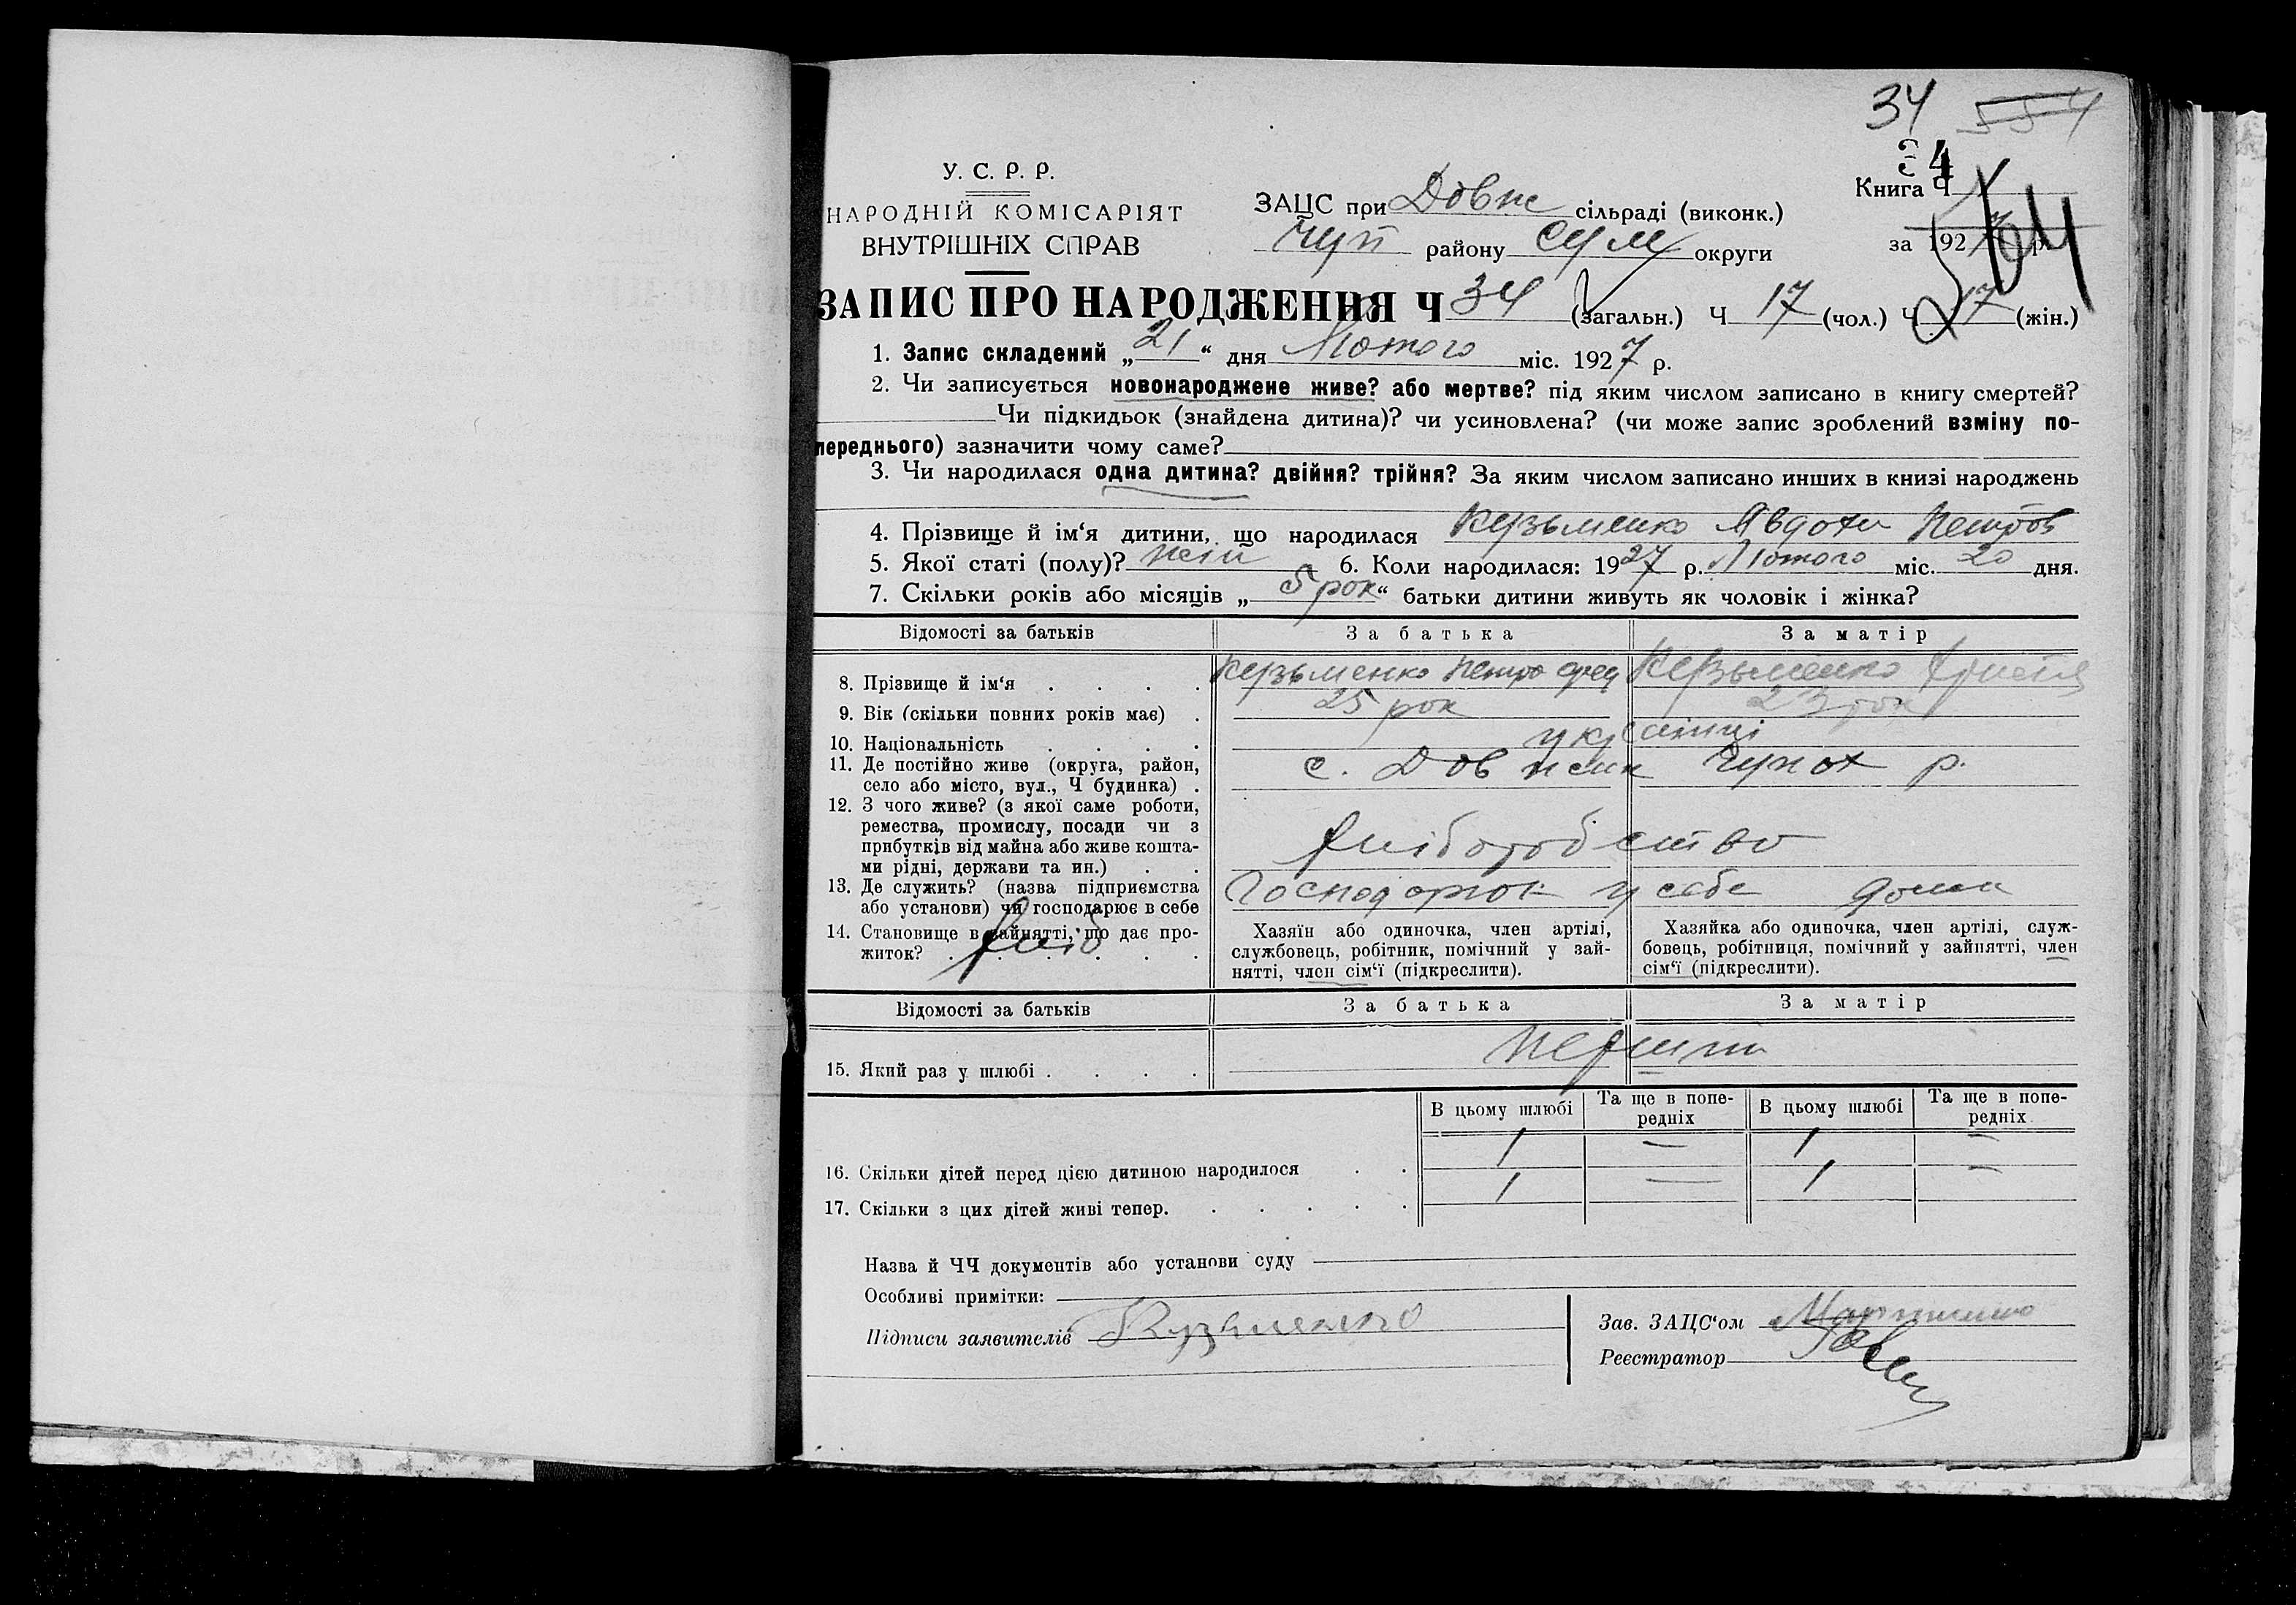 34 554
34
У. С. Р. Р.
НАРОДНІЙ КОМІСАРІЯТ
ВНУТРІШНІХ СПРАВ
ЗАЦС при Довж сільраді (виконк.)
Чуп району Сум округи
Книга Ч
за 1927 р.
ЗАПИС ПРО НАРОДЖЕННЯ Ч 34 (загальн.) Ч 17 (чол.) Ч 17 (жін.)
1. Запис складений „21“ дня Лютого міс. 1927 р.
2. Чи записується новонароджене живе? або мертве? під яким числом записано в книгу смертей?
Чи підкидьок (знайдена дитина)? чи усиновлена? (чи може запис зроблений взміну по-
переднього) зазначити чому саме?
3. Чи народилася одна дитина? двійня? трійня? За яким числом записано инших в книзі народжень
4. Прізвище й ім‘я дитини, що народилася Кузьменко Явдохи Петров
5. Якої статі (полу)? жін 6. Коли народилася: 1927 р. Лютого міс. 20 дня.
7. Скільки років або місяців „5 рок“ батьки дитини живуть як чоловік і жінка?
Відомості за батьків За батька За матір
8. Прізвище й ім‘я . . . . Кузьменко Петро Кузьменко
9. Вік (скільки повних років має) . 25 рок 23 рок
10. Національність . . . . українці
11. Де постійно живе (округа, район,
село або місто, вул., Ч будинка) .
с. Довжик Чупах р.
12. З чого живе? (з якої саме роботи,
ремества, промислу, посади чи з
прибутків від майна або живе кошта-
ми рідні, держави та ин.) . .
хліборобство
13. Де служить? (назва підприємства
або установи) чи господарює в себе
у себе дома
14. Становище в зайнятті, що дає про-
житок? . . . . . .
хліб
Хазяїн або одиночка, член артілі,
службовець, робітник, помічний у зай-
нятті, член сім‘ї (підкреслити).
Хазяйка або одиночка, член артілі, служ-
бовець, робітниця, помічний у зайнятті, член
сім‘ї (підкреслити).
Відомості за батьків За батька За матір
15. Який раз у шлюбі . . . .
В цьому шлюбі Та ще в попе-
редніх В цьому шлюбі Та ще в попе-
редніх
16. Скільки дітей перед цією дитиною народилося . . 1 — 1 —
17. Скільки з цих дітей живі тепер. . . . . . 1 — 1 —
Назва й ЧЧ документів або установи суду
Особливі примітки:
Підписи заявителів Кузьменко
Зав. ЗАЦС‘ом
Реєстратор